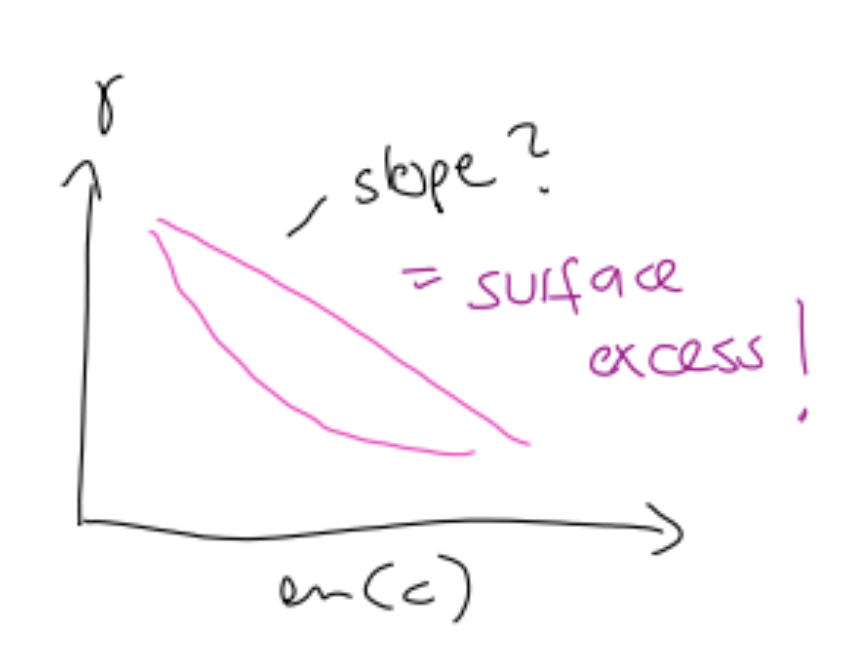 γ
slope?
= surface
excess!
ln(c)